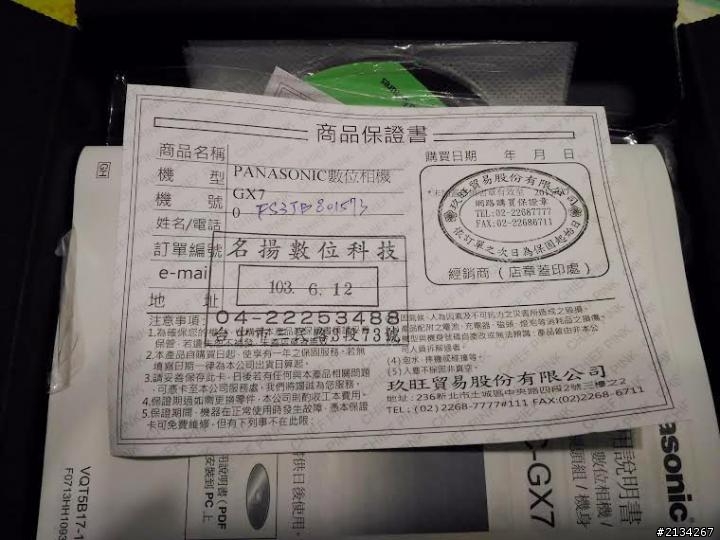 商品保證書
商品名稱
購買日期 年 月 日
機 型 PANASONIC數位相機
GX7
機 號 0 FS3JB801573
姓名/電話
訂單編號
e-mail
地 址
名揚數位科技
103. 6. 12
04-22253488
玖旺貿易股份有限公司
網路購買保證章
TEL:02-22687777
FAX:02-22686711
依訂單之次日為保固起始日
經銷商(店章蓋印處)
注意事項:
1.為確保您的
2.本產品自購買日起,使享有一年之保固服務,若無
填寫日期一律為本公司出貨日算起。
3.請妥善保存此卡,日後若有任何與本產品相關問題
可憑卡至本公司服務處,我們將竭誠為您服務。
4.保證期過如需更換零件,本公司則酌收工本費用。
5.保證期間,機器在正常使用時發生故障,憑本保證
卡可免費維修,但有下列事不在此限:
(4)泡水、摔機或碰撞等。
(5)人塵不保固。
玖旺貿易股份有限公司
地址:236新北市土城區中央路四段2號三樓之2
TEL:(02)2268-7777#111 FAX:(02)2268-6711
VQT5B17-1
F0713HH1093
用說明書 (PDF
安裝到 PC 上
供日後使用。
asonic
用說明書
數位相機 /
鏡頭組 / 機身
-GX7
#2134267